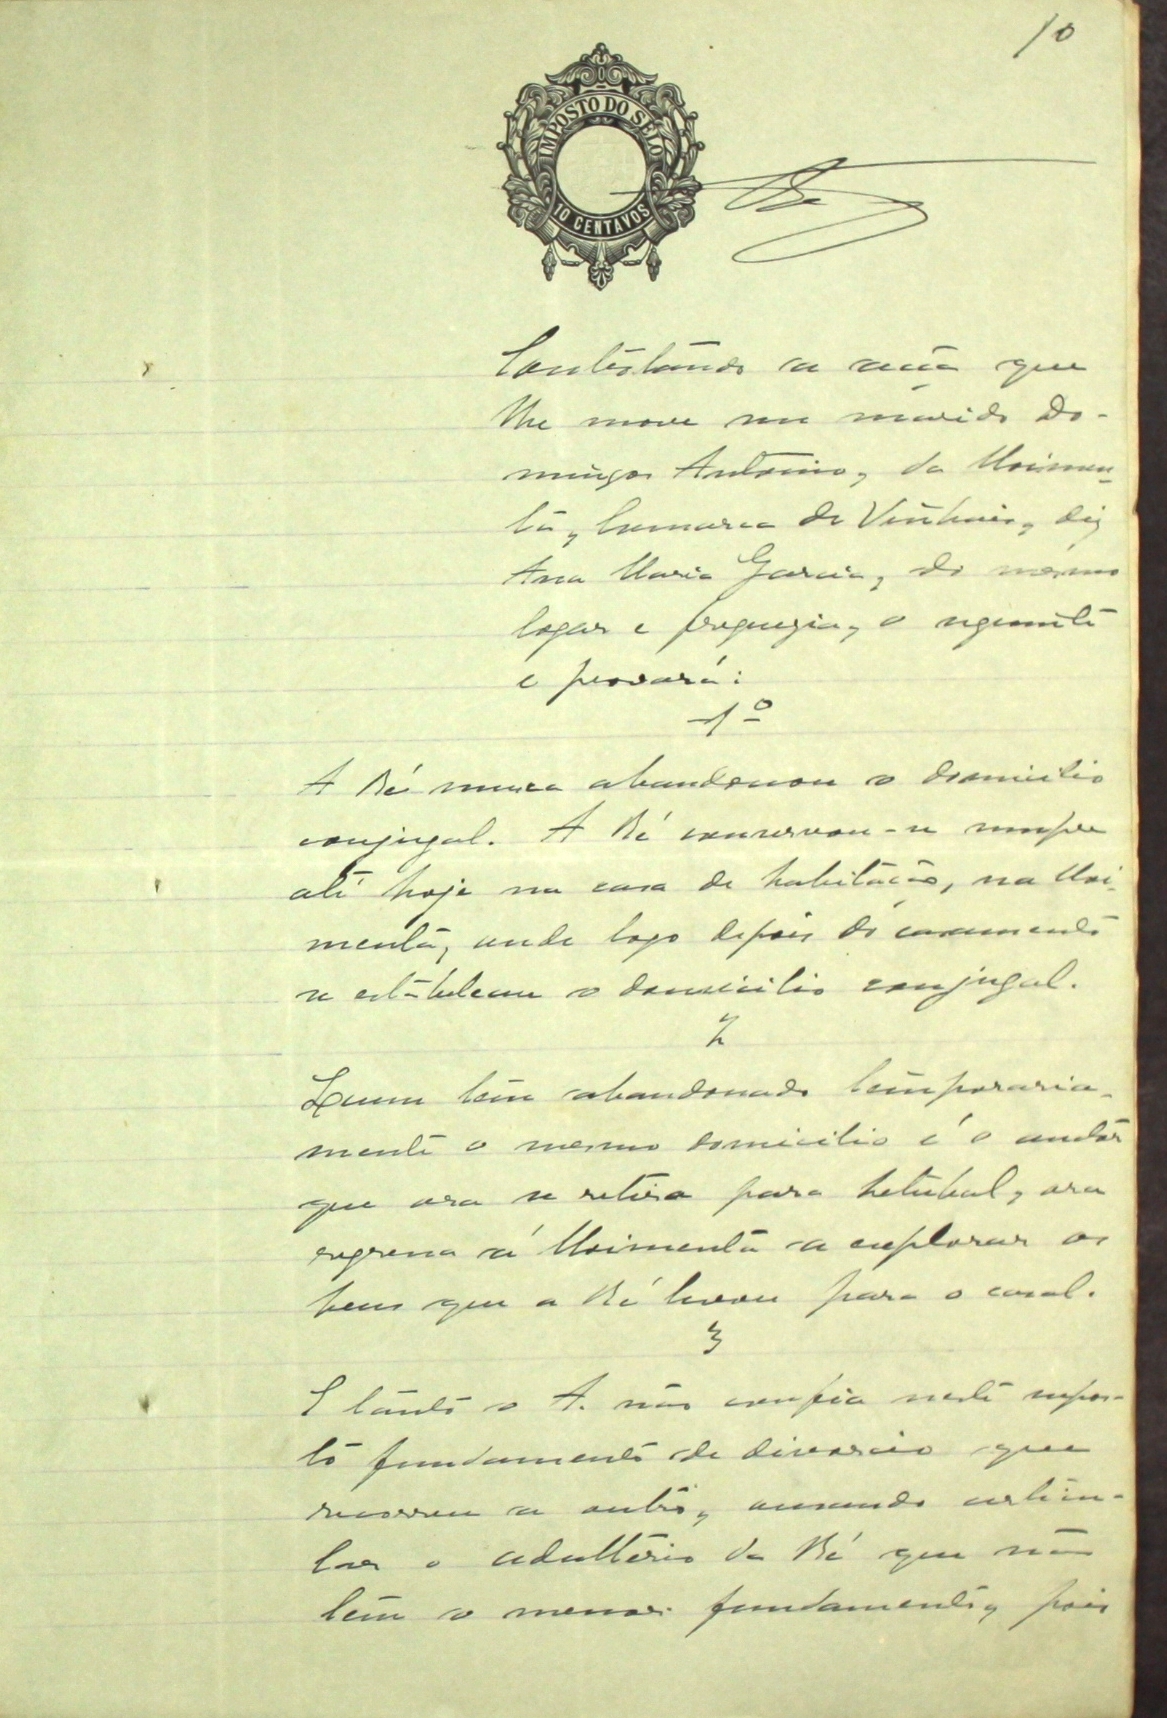 10
IMPOSTO DO SELO
10 CENTAVOS
Contestando a acão que
lhe move seu marido Do-
mingos Antonio, da Moimen-
ta, Comarca de Vinhais, diz
Ana Maria Garcia, do mesmo
logar e freguezia, o seguinte
e provará:
1º
A Ré nunca abandonou o domicilio
conjugal. A Ré conservou-se sempre
até hoje na casa de habitação, na Moi-
menta, onde logo depois do casamento
se estabeleceu o domicilio conjugal.
2
Quem tem abandonado temporaria-
mente o mesmo domicilio é o autor
que ora se retira para Setubal, ora
regressa á Moimenta a explorar os
bens que a Ré levou para o casal.
3
E tanto o A. não confia neste supos-
to fundamento de divorcio que
recorreu a outro, ousando articu-
lar o adultério da Ré que não
tem o menor fundamento, pois